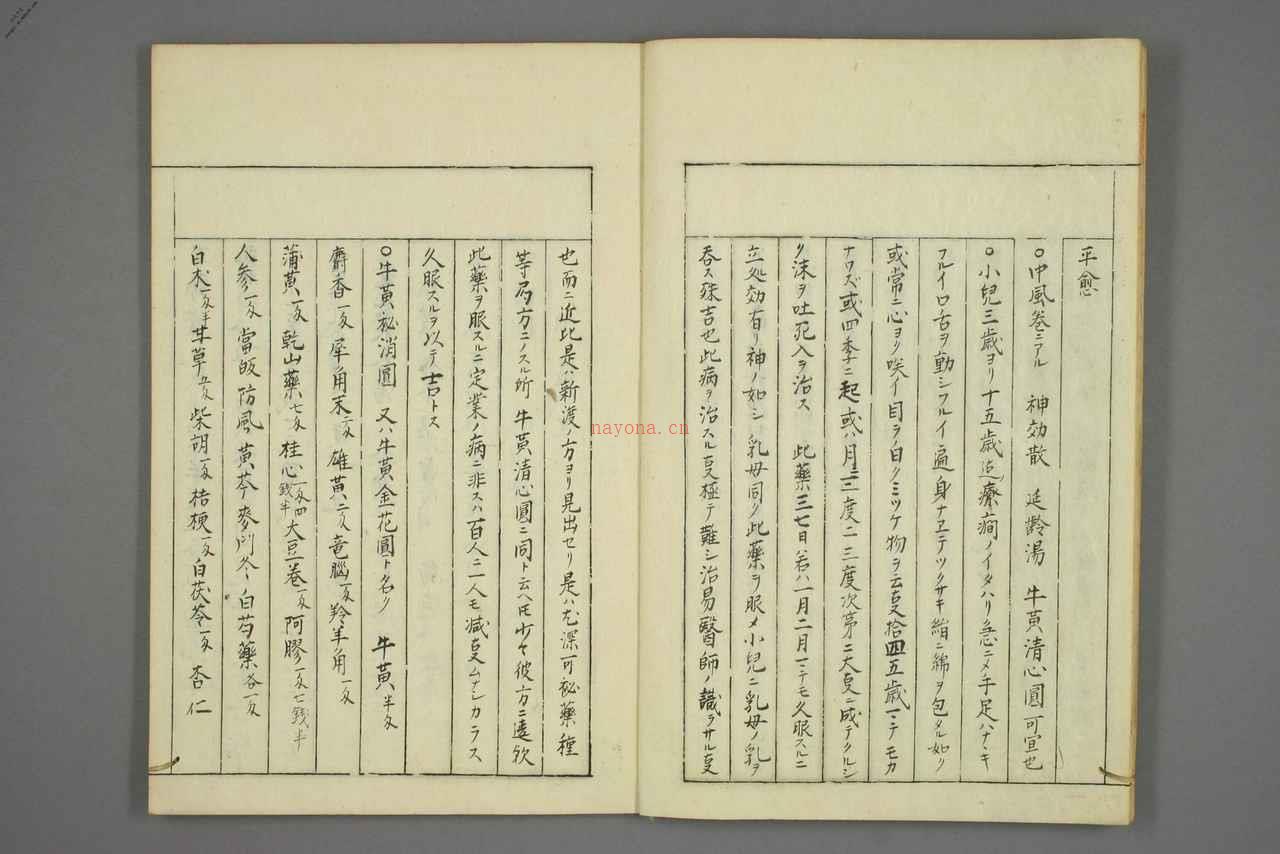 平愈
○中風巻ニアル 神効散 延齢湯 牛黄清心圓可宣也
○小兒三歳ヨリ十五歳迄癲癇ノイタハリ急ニ〆手足ハナヽキ
フルイ口舌ヲ動シフルイ遍身ナヱテツクサキ絹ニ綿ヲ包タル如リ
或常ニ心ヨク咲イ目ヲ白クミツケ物ヲ云叓拾四五歳マテモカ
ナワズ或四季ニ起或ハ月ニ二度二三度次第ニ大叓ニ成テクルシ
ク沫ヲ吐死入ヲ治ス 此藥三七日若ハ一月二月マテモ久眼スルニ
立処効有リ神ノ如シ 乳母同ク此藥ヲ眼〆小兒ニ乳母ノ乳ヲ
呑ス殊吉也此病ヲ治スル叓極テ難シ治易醫師ノ識ラサル叓
也而ニ近比是ハ新渡ノ方ヨリ見出セリ是ハ尤深可祕藥種
等局方ニノスル所 牛黄清心圓ニ同ト云ヘ𪜈少々彼方ニ遠欤
此藥ヲ眼スルニ定業ノ病ニ非スハ百人ニ一人モ減叓ムナシカラス
久眼スルヲ以テ吉トス
○牛黄祕消圓 又ハ牛黄金花圓ト名ク 牛黄半友
麝香一友犀角末二友雄黄二友竜腦一友羚羊角一友
蒲黄一友乾山藥七友桂心一友四錢半大豆巻一友阿膠一友七錢半
人参一友當皈防風黄芩麥門冬白芍藥各一友
白朮一友半甘草五友柴胡一友桔梗一友白茯苓一友杏仁
nayona.cn